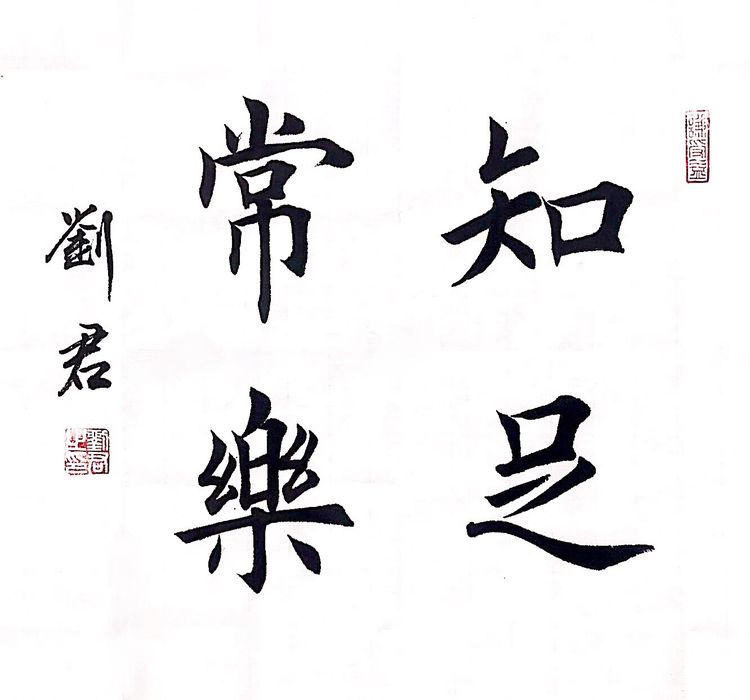 知足
常樂
劉君